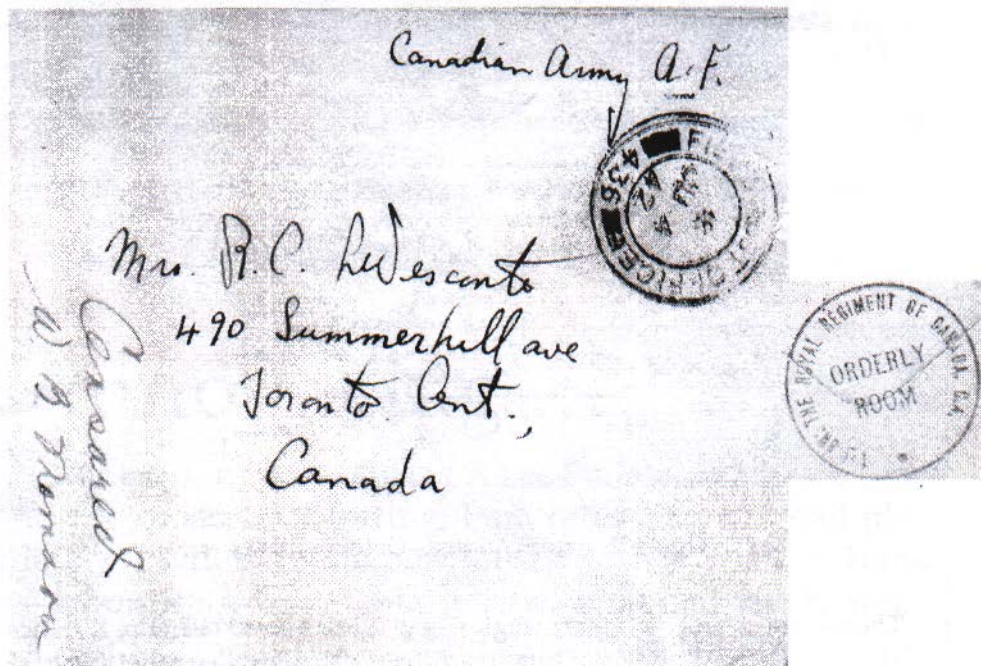 Canadian Army A.F.
FIELD POST OFFICE
436
42
Mrs. R.C. LeVesconte
490 Summerhill ave
Toronto. Ont.,
Canada
W B
1st BN THE ROYAL REGIMENT OF CANADA. C.A.
ORDERLY
ROOM